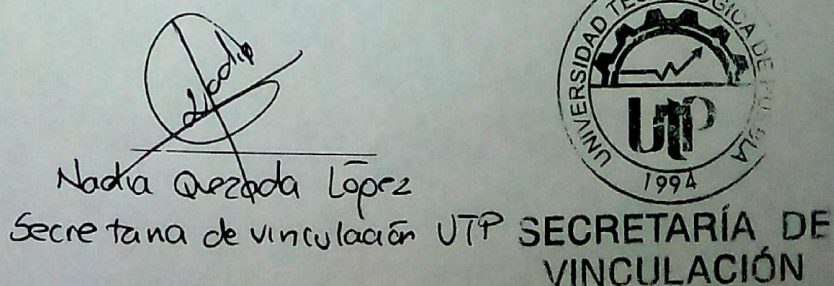 Nadia
Nadia Quezada López
Secretaria de vinculación UTP
UNIVERSIDAD TECNOLÓGICA DE PUEBLA
UTP
1994
SECRETARÍA DE
VINCULACIÓN